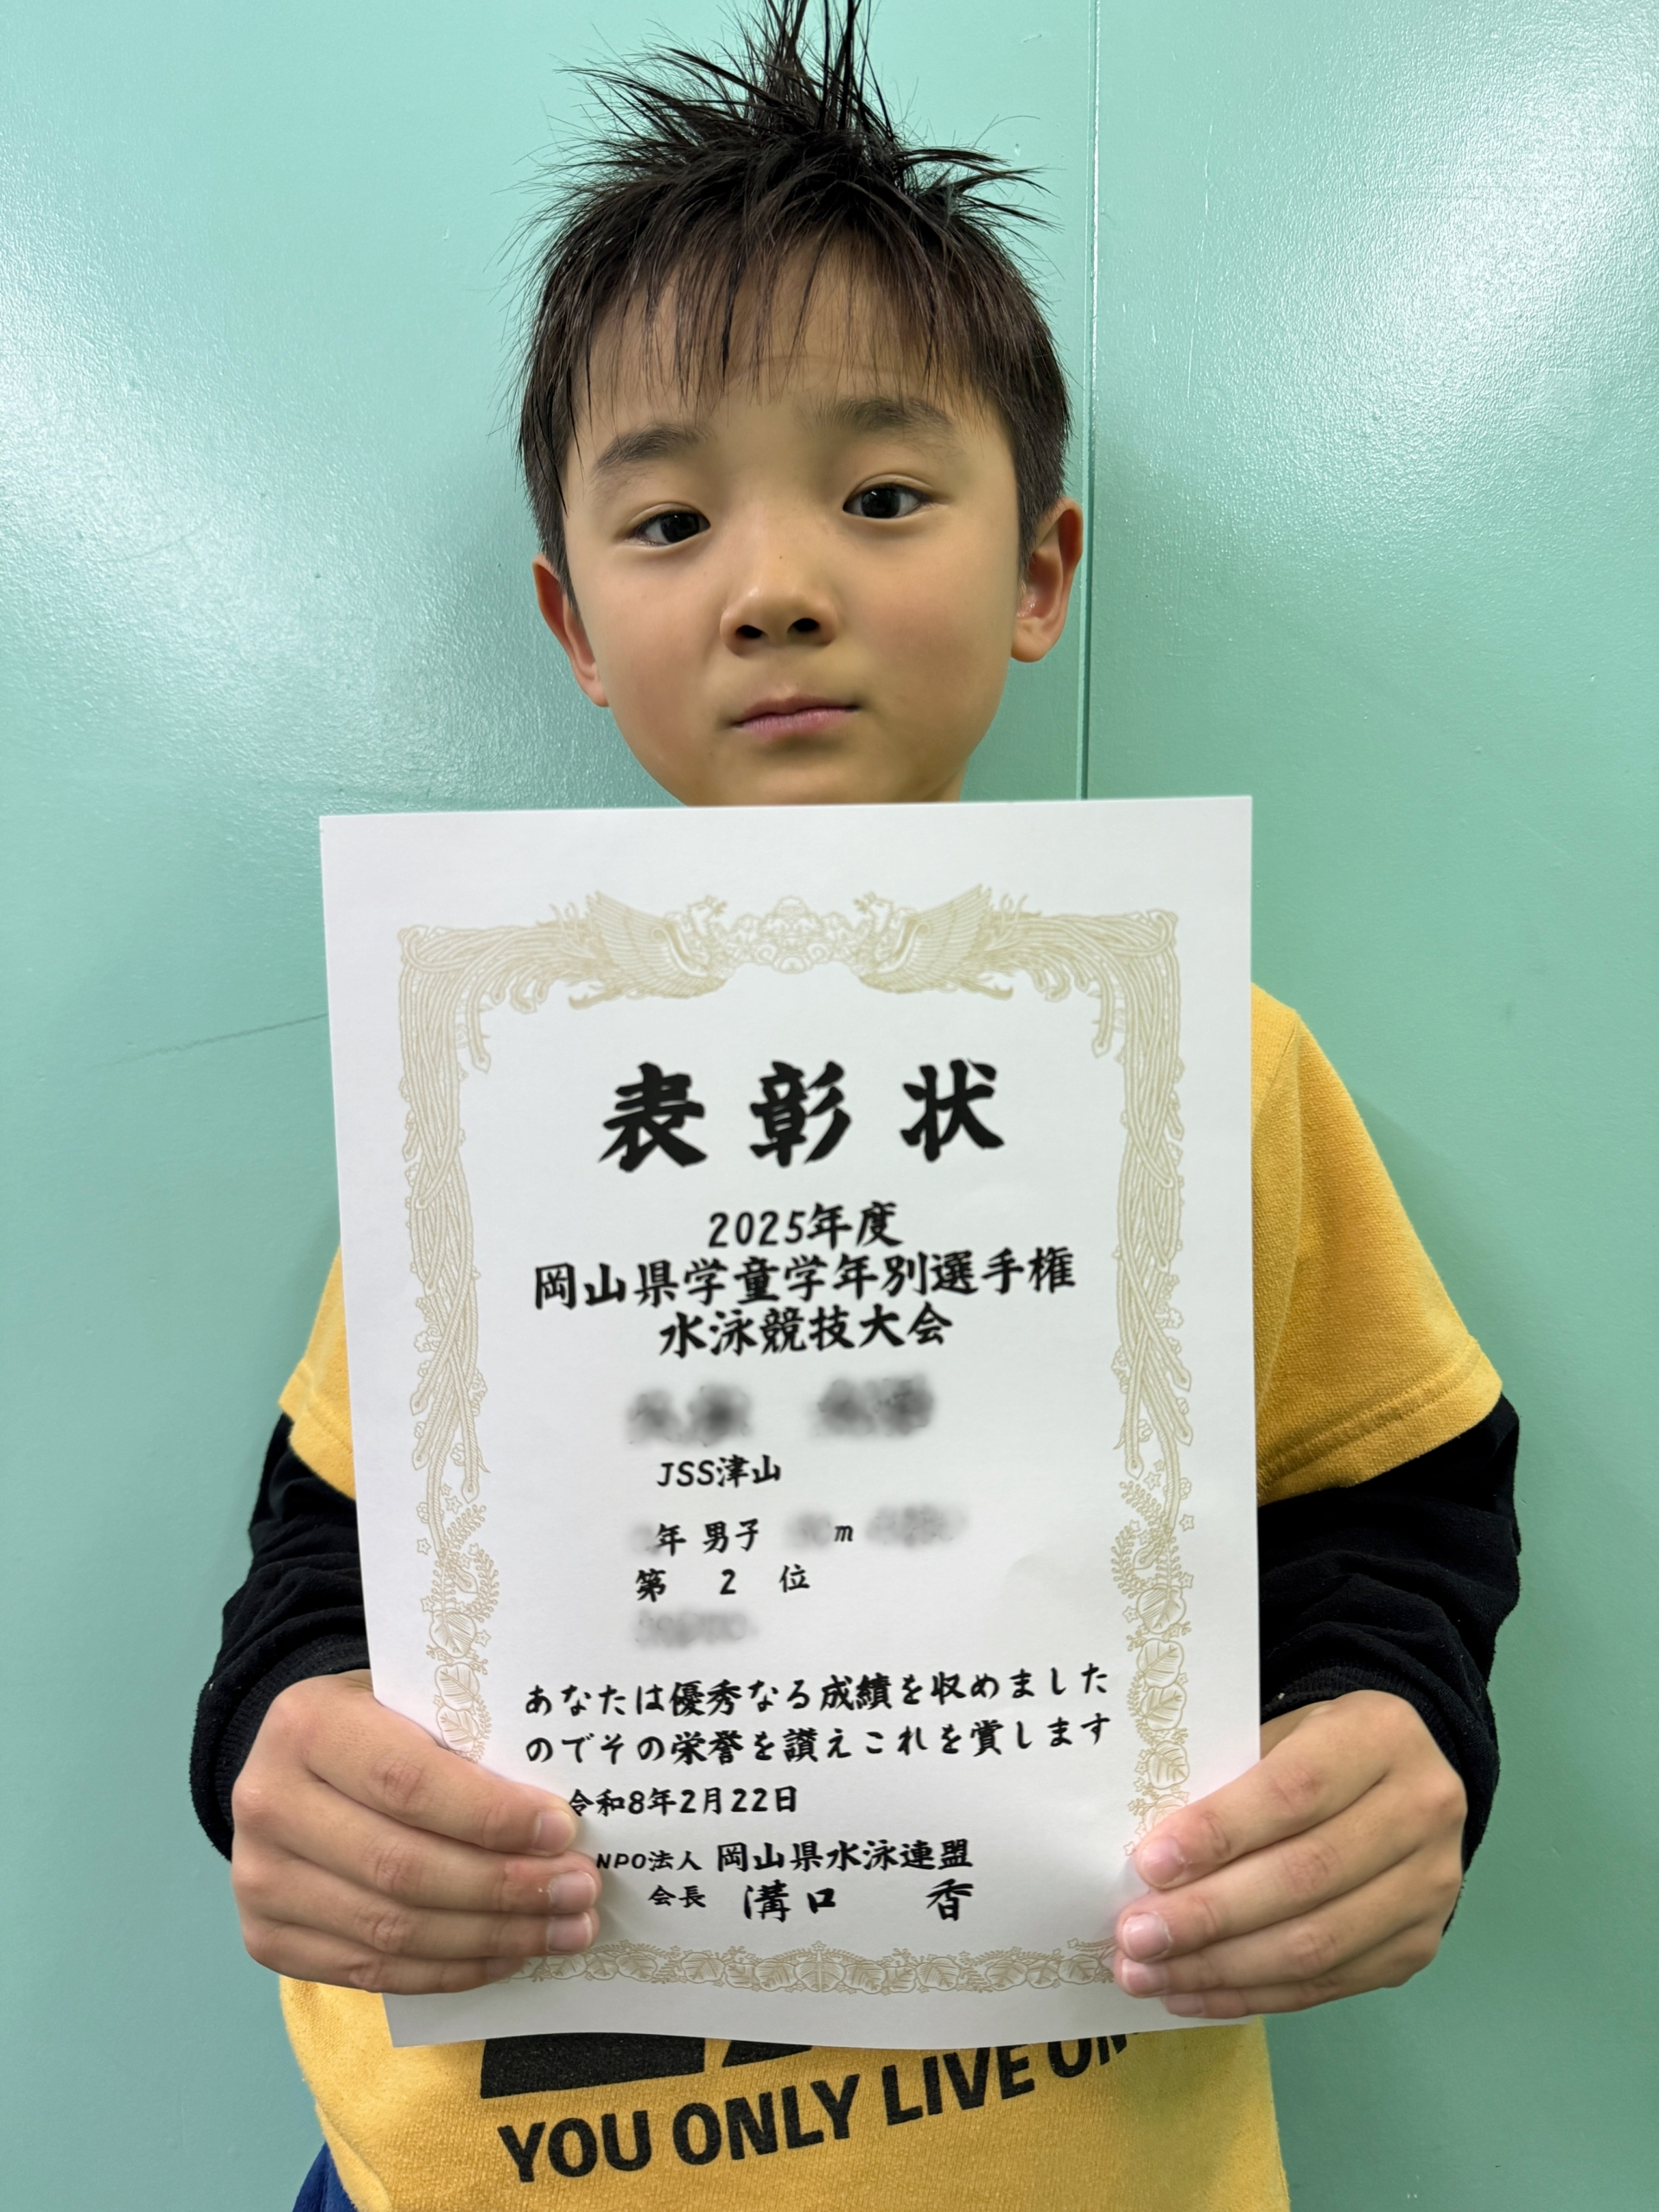 表彰状
2025年度
岡山県学童学年別選手権
水泳競技大会
JSS津山
年 男子 m
第 2 位
あなたは優秀なる成績を収めました
のでその栄誉を讃えこれを賞します
令和8年2月22日
NPO法人 岡山県水泳連盟
会長 溝口 香
YOU ONLY LIVE